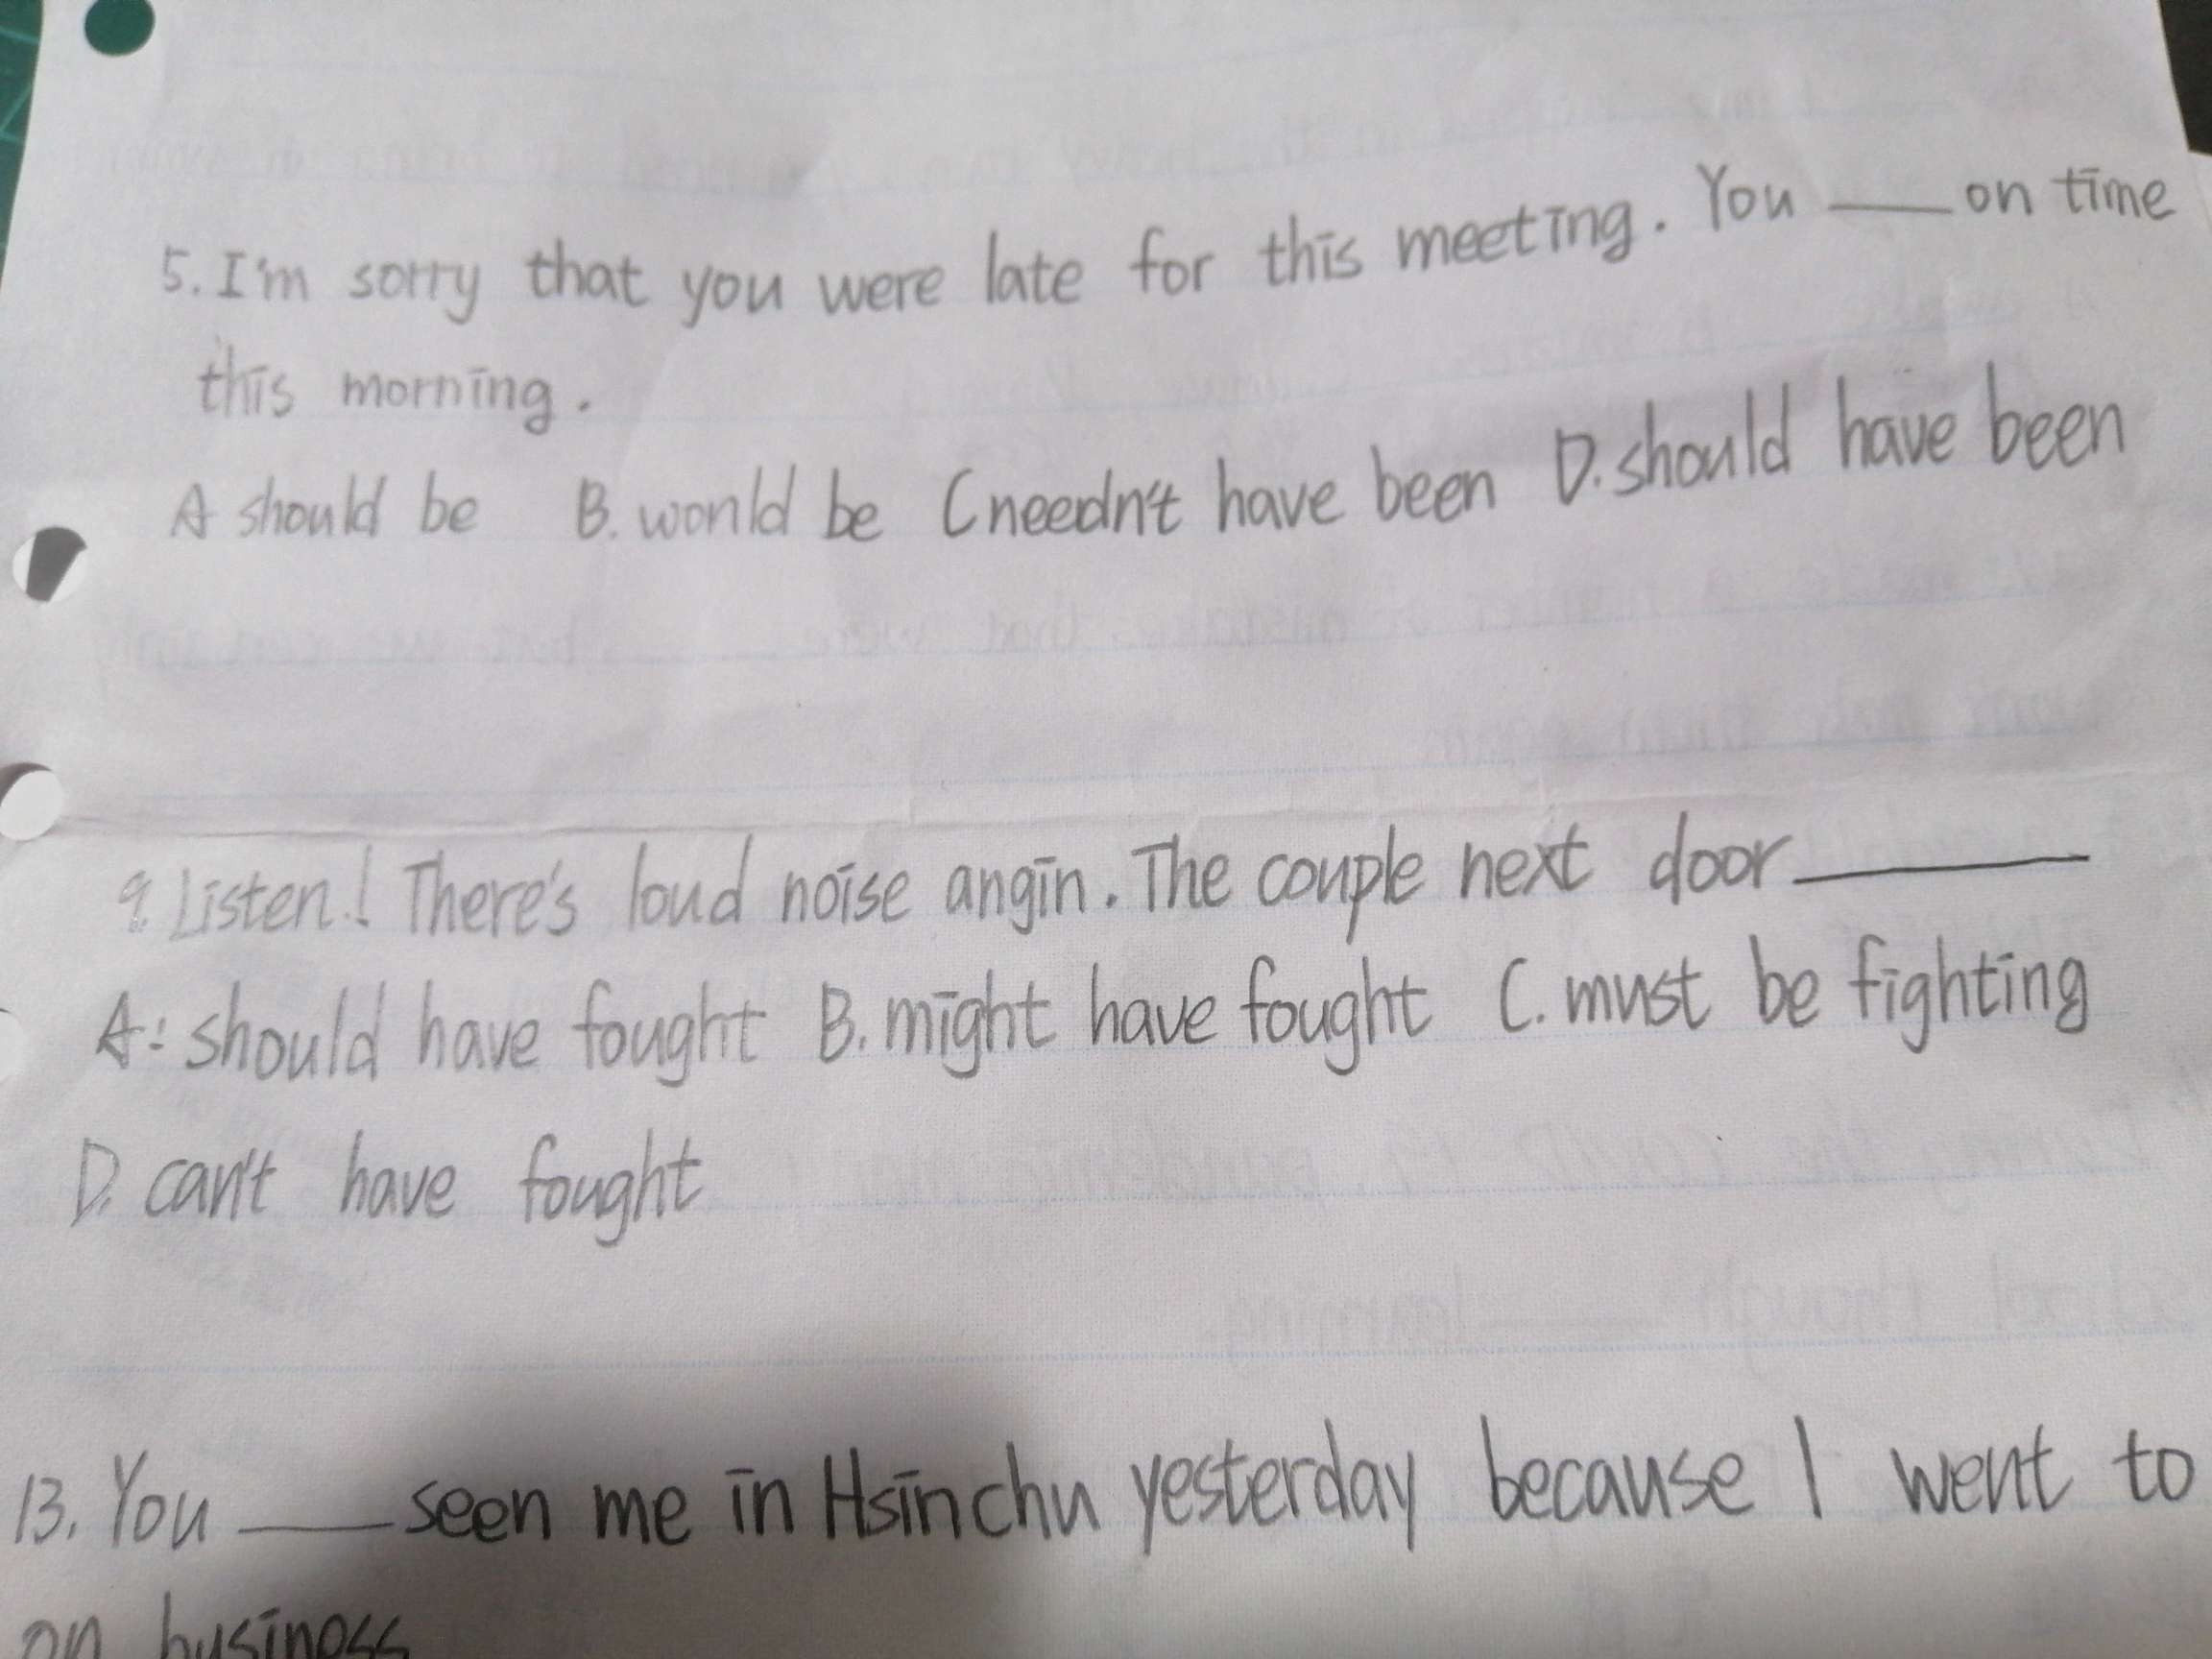 5. I'm sorry that you were late for this meeting. You ___ on time
this morning.
A should be B. would be C needn't have been D. should have been
9. Listen! There's loud noise angin. The couple next door ___
A: should have fought B. might have fought C. must be fighting
D. can't have fought
13. You ___ seen me in Hsinchu yesterday because I went to
on business